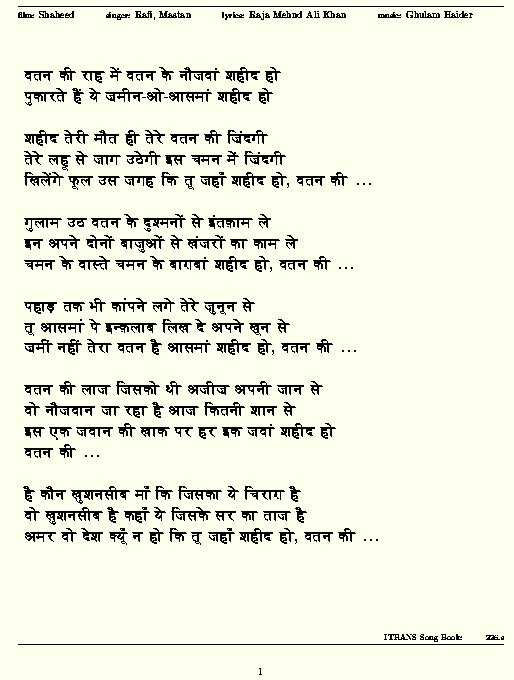 film: Shaheed singer: Rafi, Mastan lyrics: Raja Mehnd Ali Khan music: Ghulam Haider
वतन की राह में वतन के नौजवां शहीद हो
पुकारते हैं ये जमीन-ओ-आसमां शहीद हो
शहीद तेरी मौत ही तेरे वतन की जिंदगी
तेरे लहू से जाग उठेगी इस चमन में जिंदगी
खिलेंगे फूल उस जगह कि तू जहाँ शहीद हो, वतन की ...
गुलाम उठ वतन के दुश्मनों से इंतक़ाम ले
इन अपने दोनों बाजुओं से खंजरों का काम ले
चमन के वास्ते चमन के बाग़बां शहीद हो, वतन की ...
पहाड़ तक भी कांपने लगे तेरे जुनून से
तू आसमां पे इन्क़लाब लिख दे अपने खून से
जमीं नहीं तेरा वतन है आसमां शहीद हो, वतन की ...
वतन की लाज जिसको थी अजीज अपनी जान से
वो नौजवान जा रहा है आज कितनी शान से
इस एक जवान की खाक पर हर इक जवां शहीद हो
वतन की ...
है कौन खुशनसीब माँ कि जिसका ये चिराग़ है
वो खुशनसीब है कहाँ ये जिसके सर का ताज है
अमर वो देश क्यूँ न हो कि तू जहाँ शहीद हो, वतन की ...
ITRANS Song Book:
1